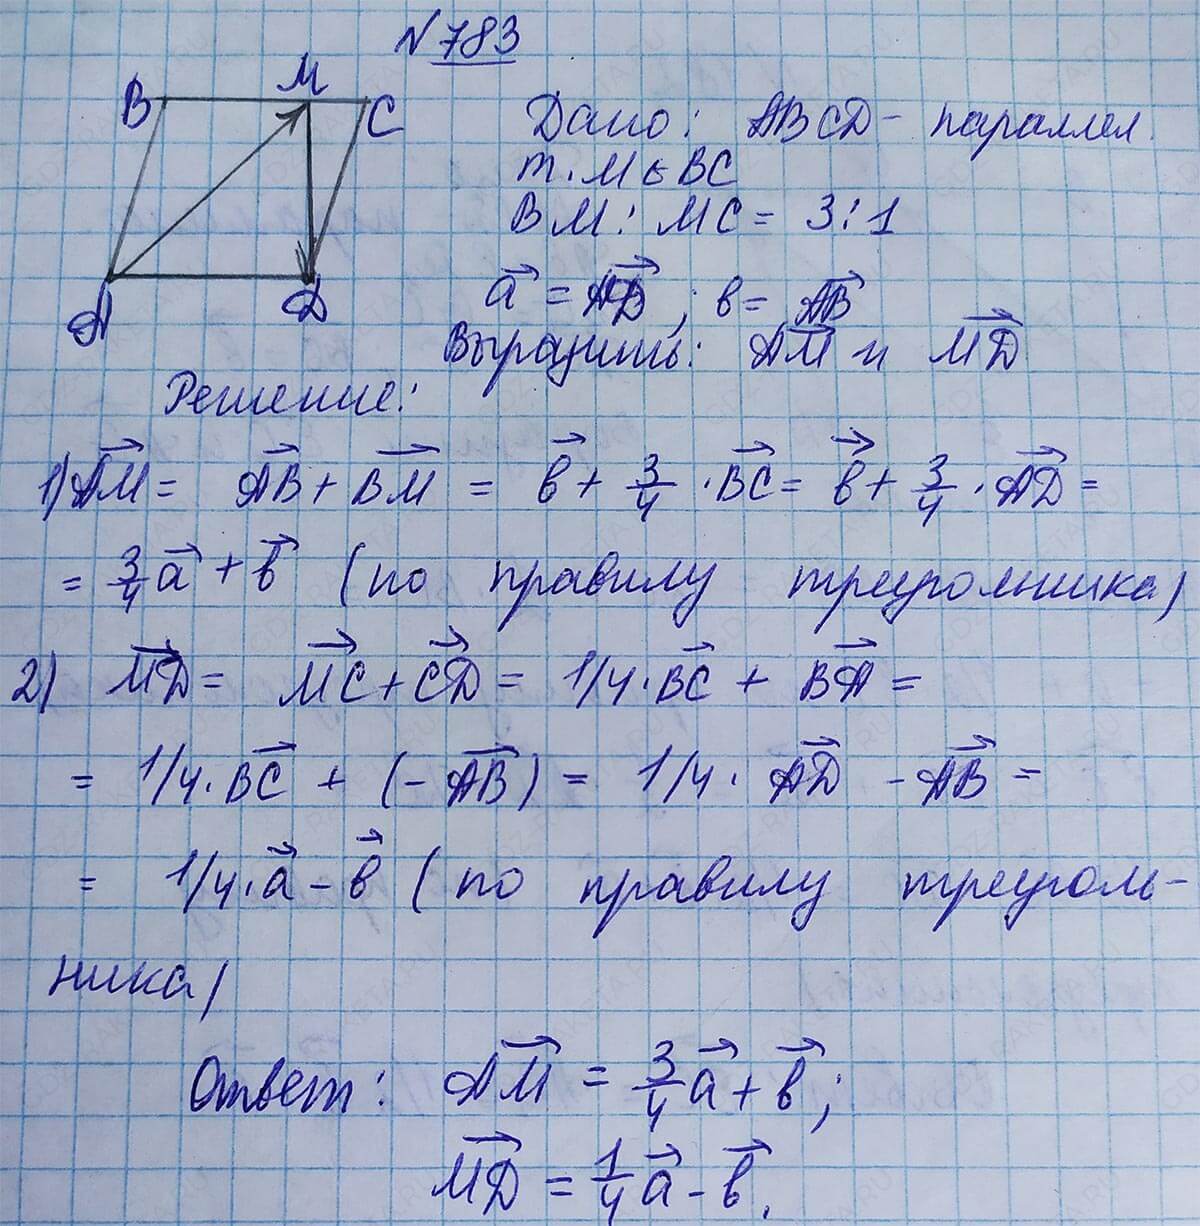 №783
B M C
A D
Дано: ABCD - параллел.
т. M ∈ BC
BM : MC = 3 : 1
a⃗ = AD⃗ ; в = AB⃗
Выразить: AM⃗ и MD⃗
Решение:
1) AM⃗ = AB⃗ + BM⃗ = в⃗ + 3/4 · BC⃗ = в⃗ + 3/4 · AD⃗ =
= 3/4 a⃗ + в⃗ (по правилу треугольника)
2) MD⃗ = MC⃗ + CD⃗ = 1/4 · BC⃗ + BA⃗ =
= 1/4 · BC⃗ + (- AB⃗) = 1/4 · AD⃗ - AB⃗ =
= 1/4 · a⃗ - в⃗ (по правилу треуголь-
ника)
Ответ: AM⃗ = 3/4 a⃗ + в⃗ ;
MD⃗ = 1/4 a⃗ - в⃗ .